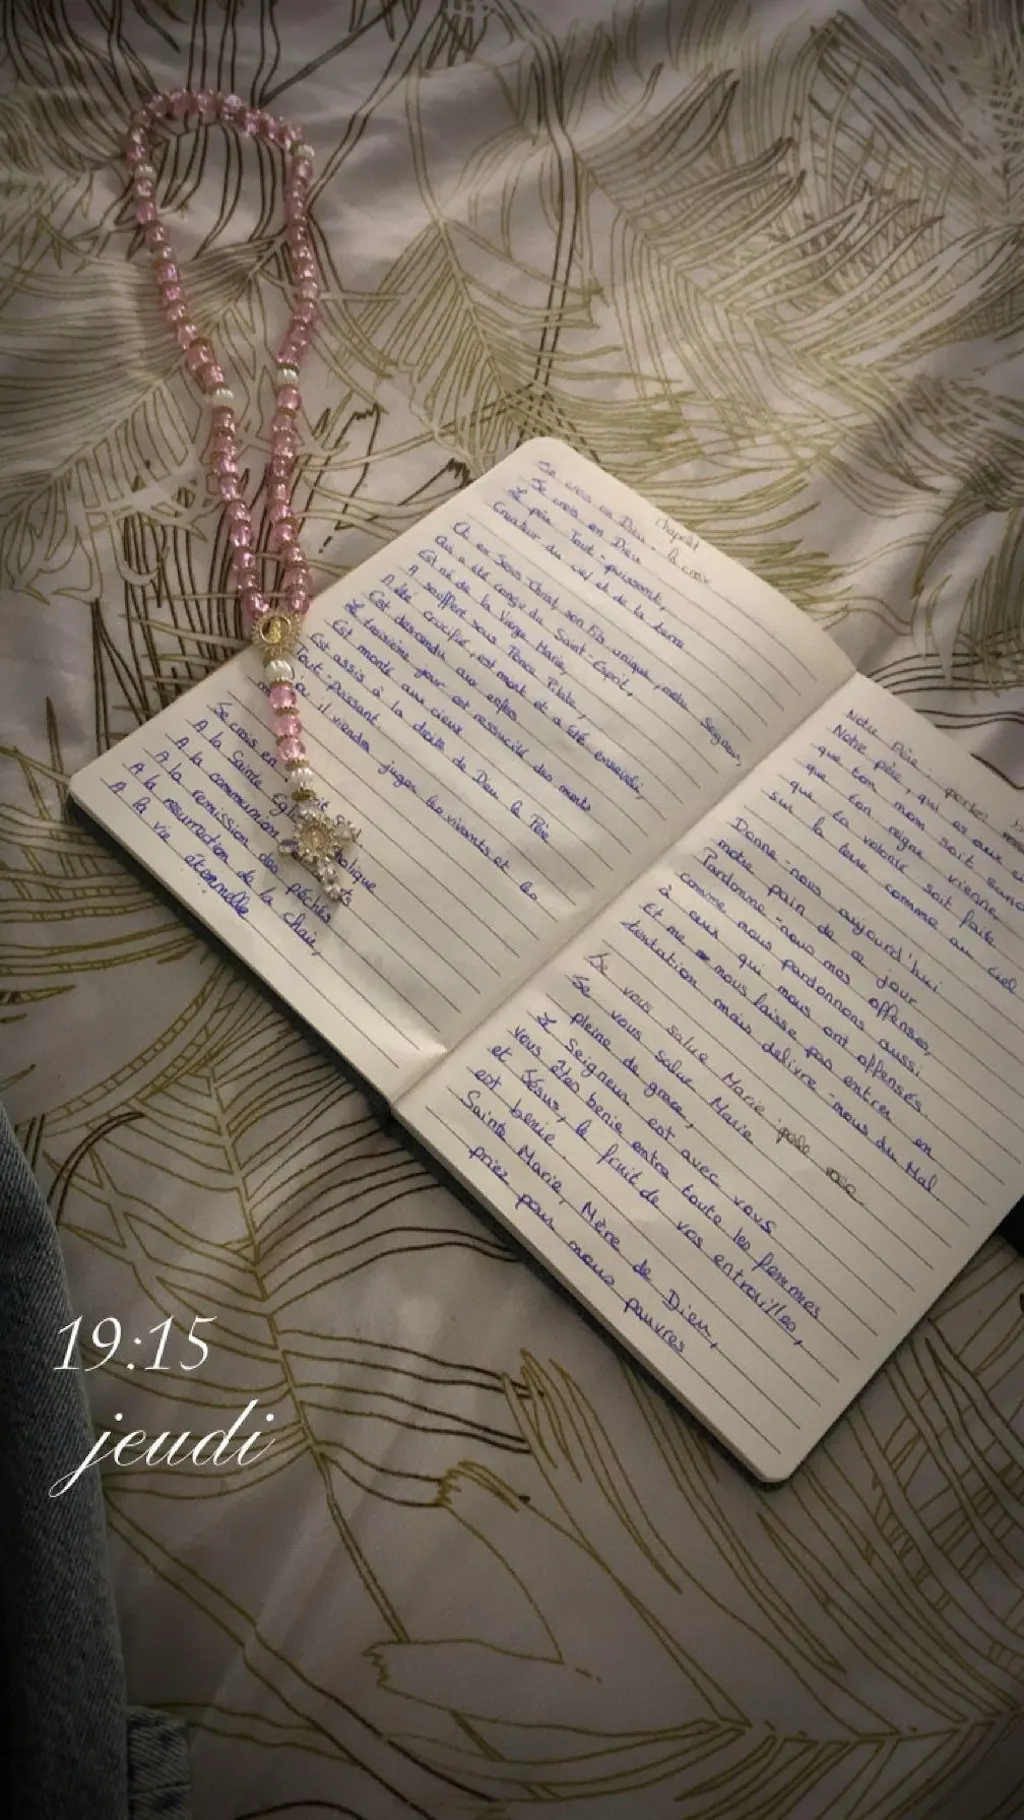 Chapelet
Je crois en Dieu - la croix
Je crois en Dieu
Le père Tout-puissant,
Créateur du ciel et de la terre
Et en Jésus Christ, son fils unique, notre Seigneur
Qui a été conçu du Saint-Esprit,
Est né de la Vierge Marie,
A souffert sous Ponce Pilate,
A été crucifié, est mort et a été enseveli,
Est descendu aux enfers
Le troisième jour est ressucité des morts
Est monté aux cieux
Est assis à la droite de Dieu le Père
Tout-puissant,
où il viendra juger les vivants et les
Je crois en
A la Sainte Église
A la communion
A la remission des péchés
A la resurrection de la chair,
A la vie éternelle
Notre Père :
Notre père, qui es aux
que ton nom soit
que ton règne vienne
que ta volonté soit faite
sur la terre comme au ciel
Donne-nous aujourd'hui
notre pain de ce jour
Pardonne-nous mes offenses,
comme nous pardonnons aussi
à ceux qui nous ont offensés.
Et ne nous laisse pas entrer en
tentation mais delivre-nous du Mal.
Je vous salue Marie : perle rose
Je vous salue Marie
pleine de grace,
Le Seigneur est avec vous
vous êtes benie entre toute les femmes
et Jésus, le fruit de vos entrailles,
est benie.
Sainte Marie, Mère de Dieu,
priez pour nous pauvres
19:15
jeudi